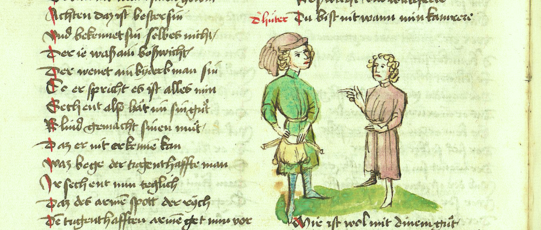 Achten daz ist boser sin
Vnd bekennet sin selbes nicht
Der ie was ain boswicht
Der wenet ain biderb man sin
So er spricht es ist alles min
Sechent also hat in sin gut
Blind gemacht sinen mut
Daz er nit erkenne kan
Waz bege der tugenthaffte man
Ir sechent nun teglich
Daz des armē spott der rich
Dē tugenthafften armē get nun vor
Du bist nit wann min kamrere
Mir ist wol mit dinem gut